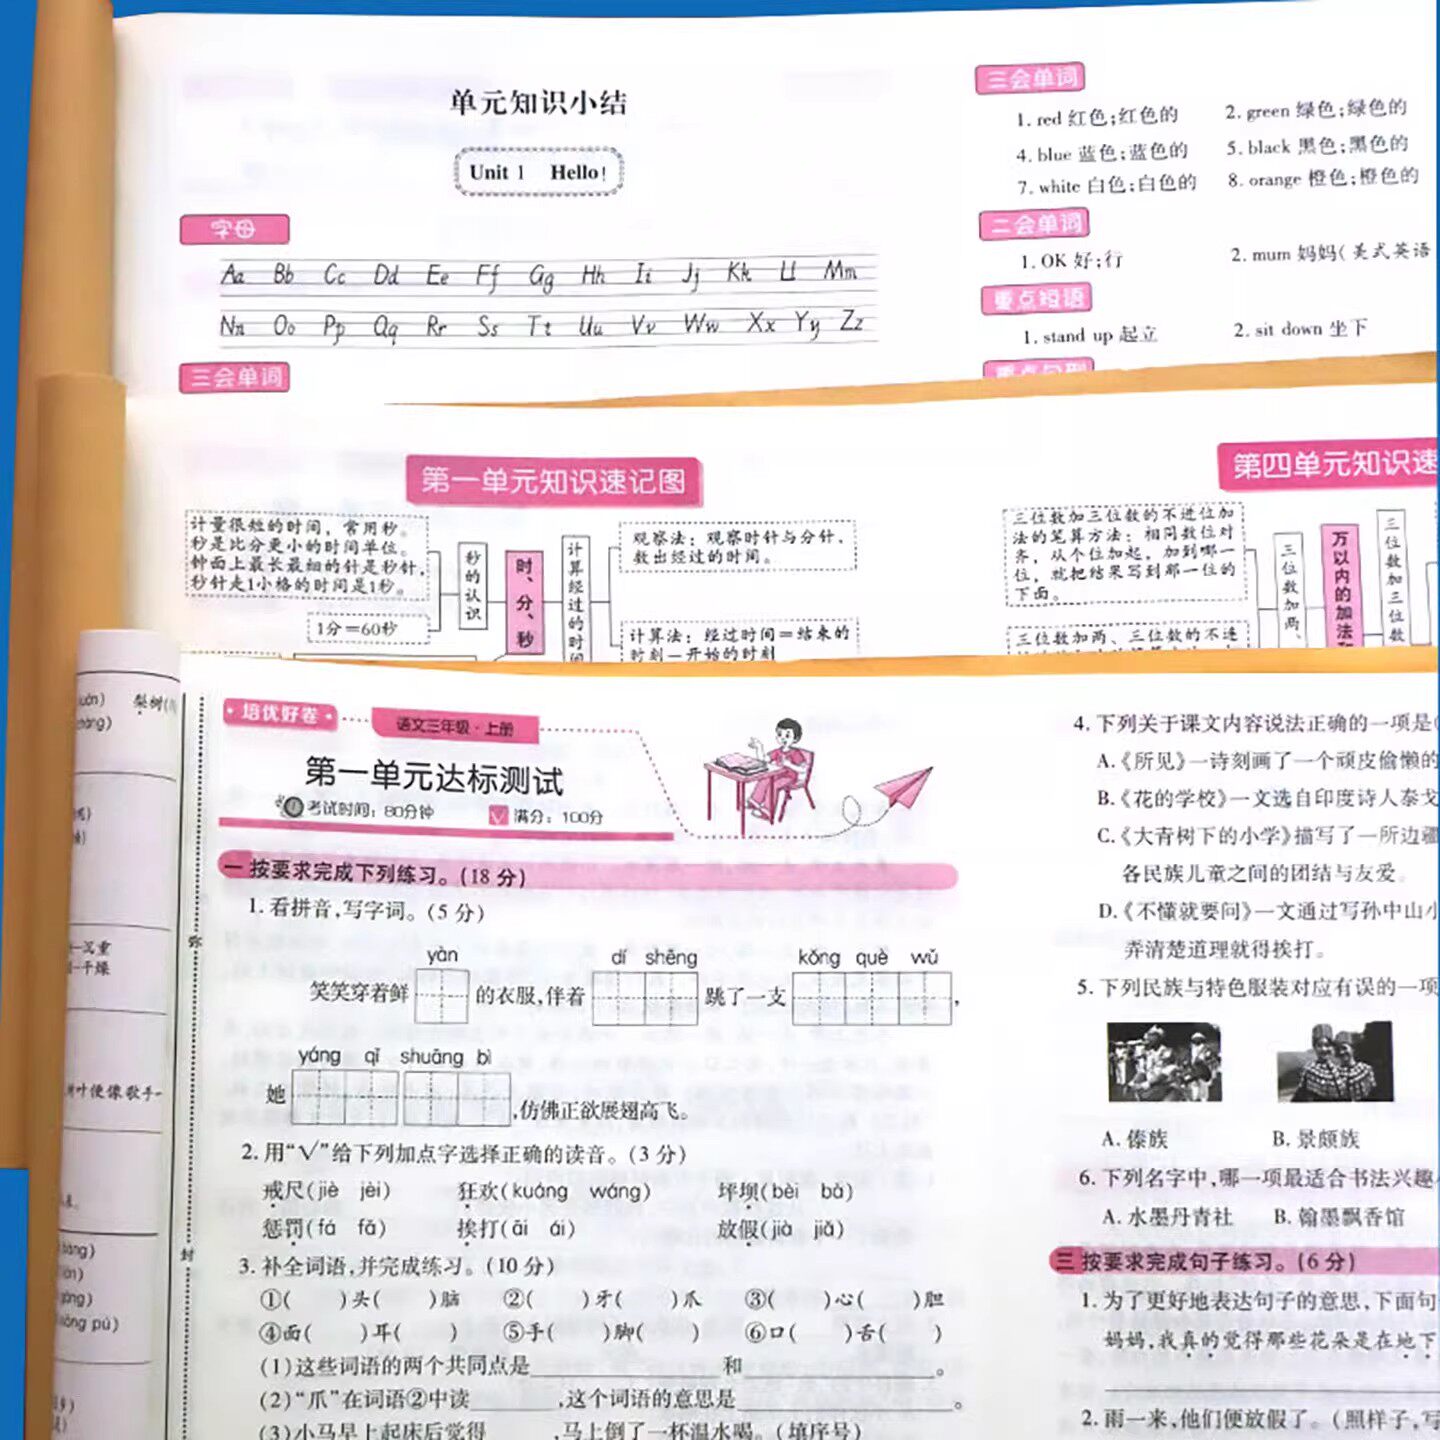 单元知识小结
Unit 1 Hello!
字母
Aa Bb Cc Dd Ee Ff Gg Hh Ii Jj Kk Ll Mm
Nn Oo Pp Qq Rr Ss Tt Uu Vv Ww Xx Yy Zz
三会单词
三会单词
1. red 红色;红色的 2. green 绿色;绿色的
4. blue 蓝色;蓝色的 5. black 黑色;黑色的
7. white 白色;白色的 8. orange 橙色;橙色的
二会单词
1. OK 好;行 2. mum 妈妈(美式英语
重点短语
1. stand up 起立 2. sit down 坐下
重点句型
第一单元知识速记图
计量很短的时间，常用秒。
秒是比分更小的时间单位。
钟面上最长最细的针是秒针，
秒针走1小格的时间是1秒。
1分=60秒
秒的认识
时、分、秒
计算经过的时间
观察法：观察时针与分针，
数出经过的时间。
计算法：经过时间=结束的
时刻-开始的时刻
第四单元知识速
三位数加三位数的不进位加
法的笔算方法：相同数位对
齐，从个位加起，加到哪一
位，就把结果写到那一位的
下面。
三位数加两、三位数的不连
三位数加两、
万以内的加法和
三位数加三位数
梨树(
沉重
干燥
树叶便像歌手
弥
封
培优好卷
语文三年级·上册
第一单元达标测试
考试时间：80分钟 满分：100分
一 按要求完成下列练习。(18 分)
1. 看拼音,写字词。(5 分)
yàn dí shēng kǒng què wǔ
笑笑穿着鲜 的衣服,伴着 跳了一支 ,
yáng qǐ shuāng bì
她 ,仿佛正欲展翅高飞。
2. 用“√”给下列加点字选择正确的读音。(3 分)
戒尺(jiè jèi) 狂欢(kuáng wáng) 坪坝(bèi bà)
惩罚(fá fǎ) 挨打(āi ái) 放假(jià jiǎ)
3. 补全词语,并完成练习。(10 分)
①( )头( )脑 ②( )牙( )爪 ③( )心( )胆
④面( )耳( ) ⑤手( )脚( ) ⑥口( )舌( )
(1)这些词语的两个共同点是 和 。
(2)“爪”在词语②中读 ,这个词语的意思是 。
(3)小马早上起床后觉得 ,马上倒了一杯温水喝。(填序号)
4. 下列关于课文内容说法正确的一项是(
A.《所见》一诗刻画了一个顽皮偷懒的
B.《花的学校》一文选自印度诗人泰戈
C.《大青树下的小学》描写了一所边疆
各民族儿童之间的团结与友爱。
D.《不懂就要问》一文通过写孙中山小
弄清楚道理就得挨打。
5. 下列民族与特色服装对应有误的一项
A. 傣族 B. 景颇族
6. 下列名字中,哪一项最适合书法兴趣
A. 水墨丹青社 B. 翰墨飘香馆
三 按要求完成句子练习。(6 分)
1. 为了更好地表达句子的意思,下面句
妈妈,我真的觉得那些花朵是在地下
2. 雨一来,他们便放假了。(照样子,写